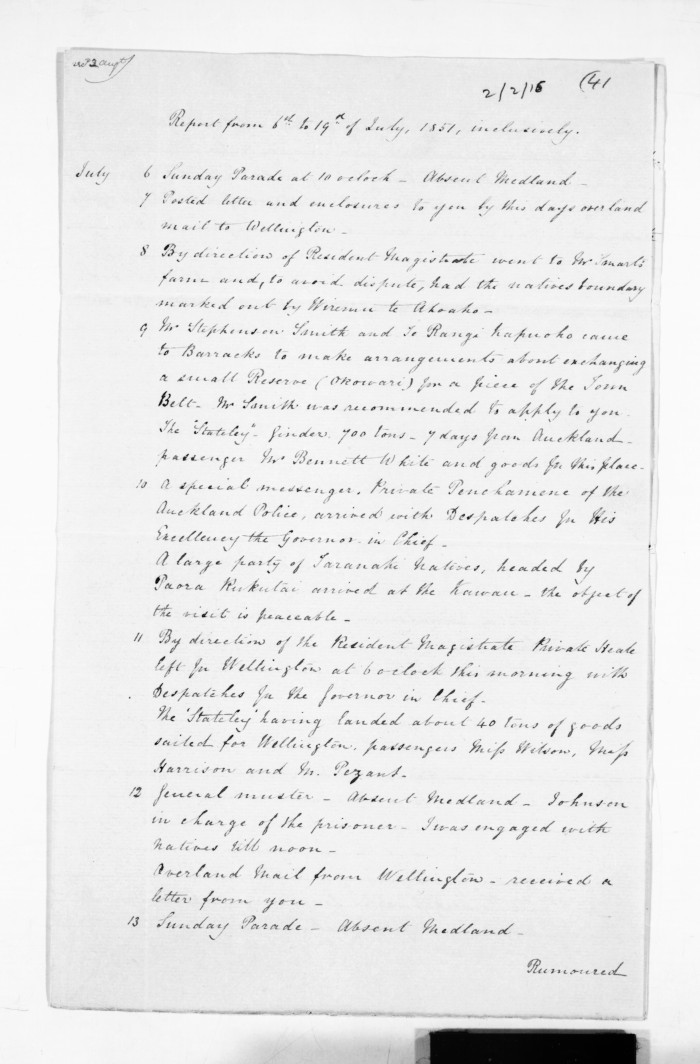 recd 2 augt
2/2/15 (41
Report from 6th to 19th of July, 1851, inclusively.
July 6 Sunday Parade at 10 oclock - Absent Medland -
7 Posted letter and enclosures to you by this days overland
mail to Wellington -
8 By direction of Resident Magistrate went to Mr Smart's
farm and, to avoid dispute, had the natives boundary
marked out by Wiremu te Ahoaho -
9 Mr Stephenson Smith and Te Rangi hapuoho came
to Barracks to make arrangements about exchanging
a small Reserve (Okowari) for a piece of the Town
Belt - Mr Smith was recommended to apply to you.
The "Stateley" - Ginder. 700 tons - 7 days from Auckland -
passenger Mr Bennett White and goods for this place -
10 A special messenger, Private Penehamene of the
Auckland Police, arrived with Despatches for His
Excellency the Governor in Chief -
A large party of Taranaki Natives, headed by
Paora Kukutai arrived at the Kawau - the object of
the visit is peaceable -
11 By direction of the Resident Magistrate Private Heale
left for Wellington at 6 oclock this morning with
Despatches for the Governor in Chief -
The 'Stateley' having landed about 40 tons of goods
sailed for Wellington. passengers Miss Wilson, Miss
Harrison and M. Pezant -
12 General muster - Absent Medland - Johnson
in charge of the prisoner - I was engaged with
Natives till noon -
Overland Mail from Wellington - received a
letter from you -
13 Sunday Parade - Absent Medland -
Rumoured